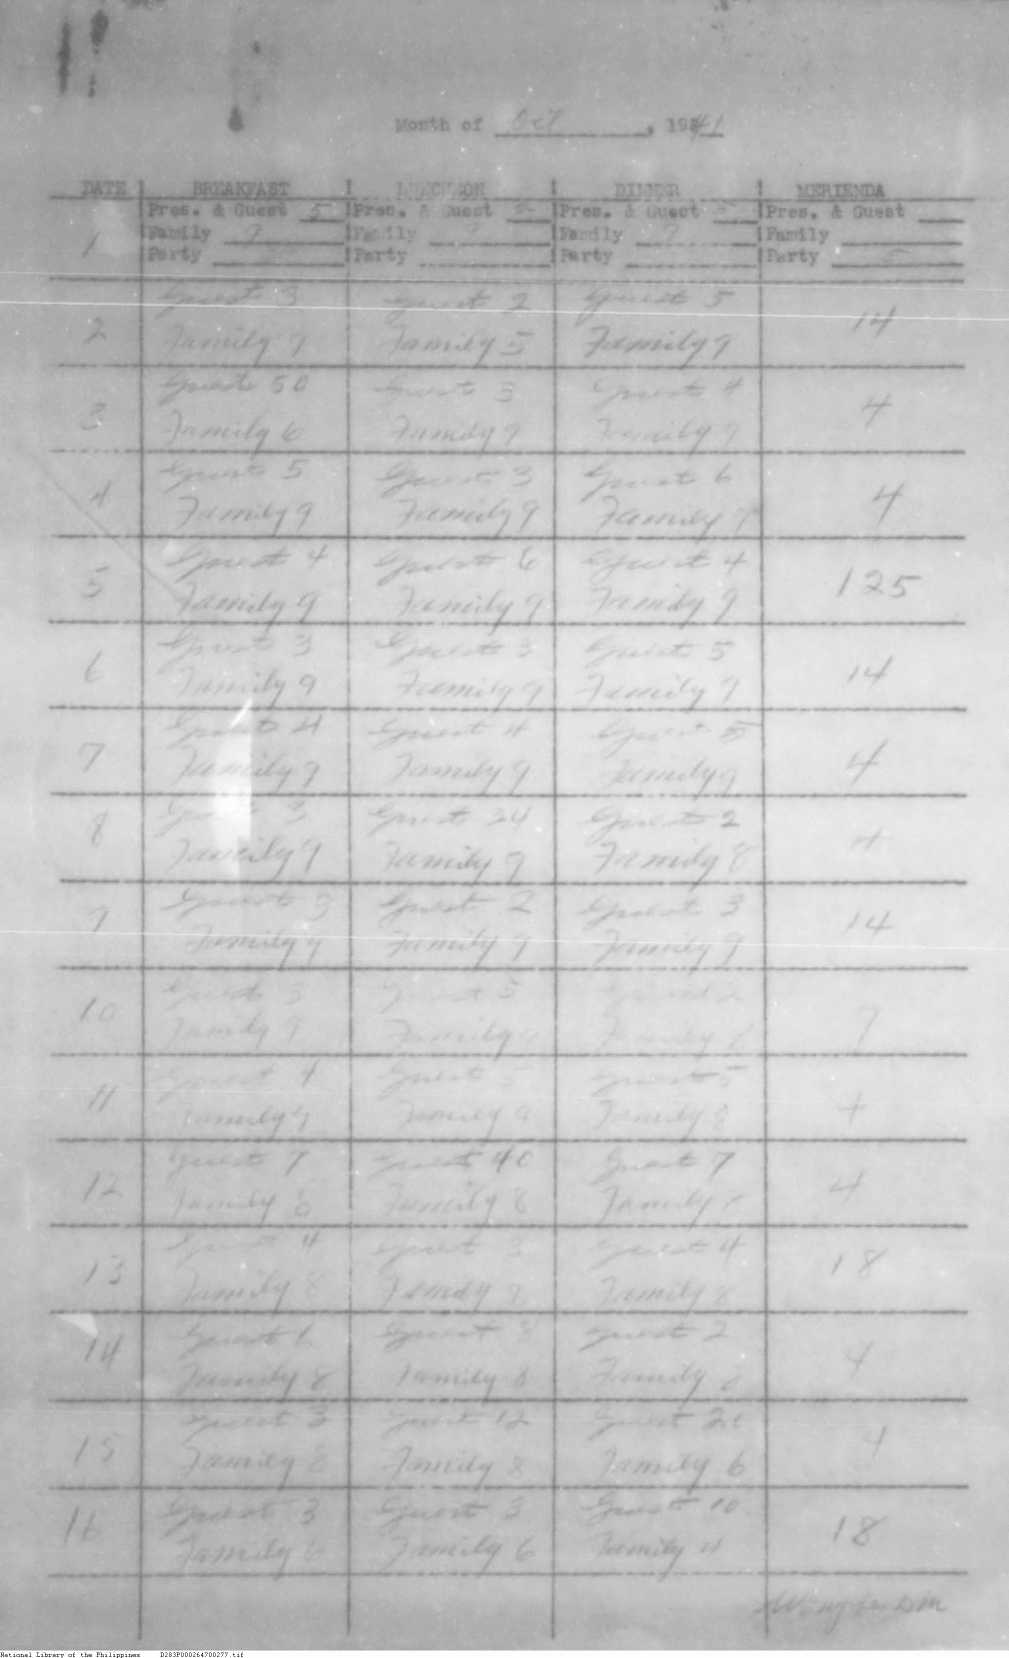 Month of Oct, 1941
DATE BREAKFAST LUNCHEON DINNER MERIENDA
Pres. & Guest 5 Pres. & Guest 5 Pres. & Guest 5 Pres. & Guest
1 Family 9 Family 9 Family 9 Family
Party Party Party Party 5
Guest 3 Guest 2 Guest 5
2 14
Family 9 Family 5 Family 9
Guest 50 Guest 3 Guest 4
3 4
Family 6 Family 9 Family 9
Guest 5 Guest 3 Guest 6
4 4
Family 9 Family 9 Family 9
Guest 4 Guest 6 Guest 4
5 125
Family 9 Family 9 Family 9
Guest 3 Guest 3 Guest 5
6 14
Family 9 Family 9 Family 9
Guest 4 Guest 4 Guest 5
7 4
Family 9 Family 9 Family 9
Guest 3 Guest 34 Guest 2
8 4
Family 9 Family 9 Family 8
Guest 3 Guest 2 Guest 3
9 14
Family 9 Family 9 Family 9
Guest 3 Guest 5 Guest
10 9
Family 9 Family Family
Guest 4 Guest 5 Guest 5
11 4
Family 9 Family 9 Family 8
Guest 7 Guest 40 Guest 7
12 4
Family 8 Family 8 Family
Guest 4 Guest 3 Guest 4
13 18
Family 8 Family 8 Family 8
Guest 6 Guest 3 Guest 2
14 4
Family 8 Family 8 Family 8
Guest 3 Guest 12 Guest
15 4
Family 8 Family 8 Family 6
Guest 3 Guest 3 Guest 10
16 18
Family 6 Family 6 Family 4
National Library of the Philippines D283P000264700277.tif